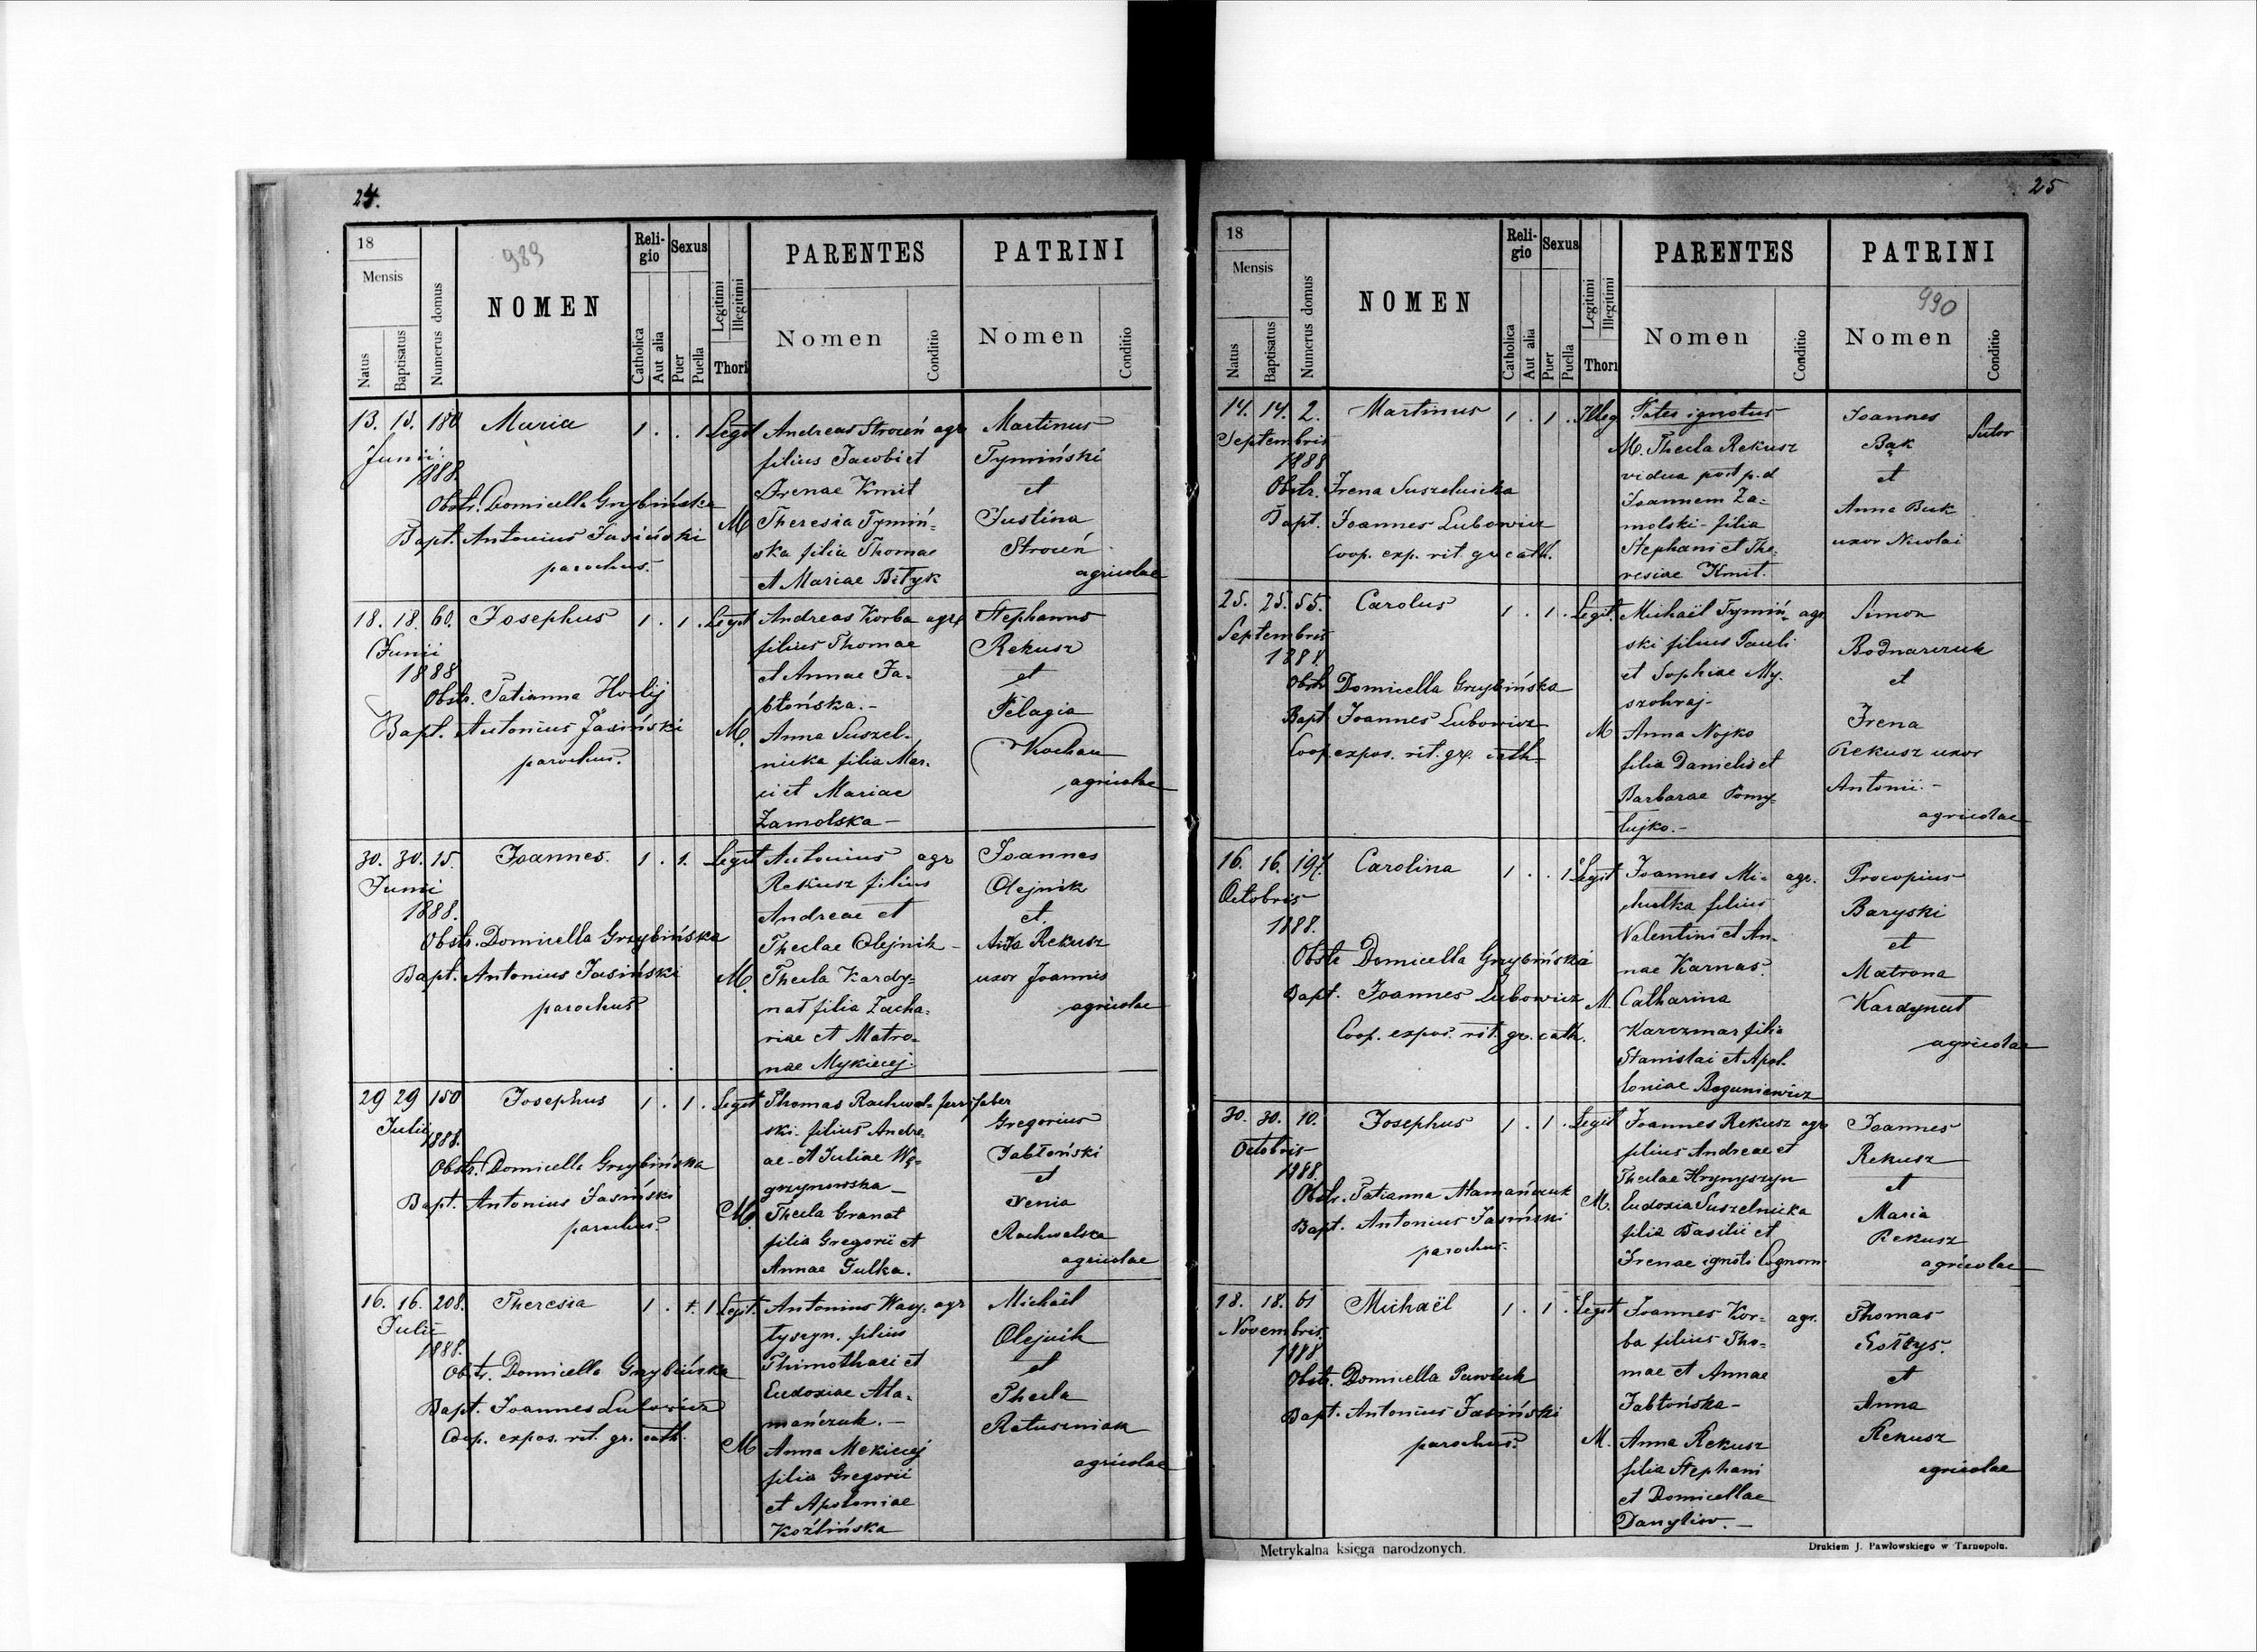 24.
18
Mensis
Natus
Baptisatus
Numerus domus
983
NOMEN
Reli-
gio
Catholica
Aut alia
Sexus
Puer
Puella
Legitimi
Illegitimi
Thori
PARENTES
Nomen
Conditio
PATRINI
Nomen
Conditio
13. 13. 180 Maria 1 . . 1 Legit
Junii
1888.
Obstr. Domicella Grzybińska
Bapt. Antonius Jasiński
parochus.
Andreas Stroceń agr
filius Jacobi et
Irenae Kmit
M Theresia Tymiń-
ska filia Thomae
et Mariae Bityk
Martinus
Tymiński
et
Justina
Stroceń
agricolae
18. 18. 60. Josephus 1 . 1 . Legit
Junii
1888
Obstr. Tatianna Horlij
Bapt. Antonius Jasiński
parochus.
Andreas Korba agr
filius Thomae
et Annae Ja-
błońska.-
M. Anna Suszel-
nicka filia Mar-
ci et Mariae
Zamolska -
Stephanus
Rekusz
et
Pelagia
Kochan
agricolae
30. 30. 15. Joannes. 1 . 1. Legit
Junii
1888.
Obstr. Domicella Grzybińska
Bapt. Antonius Jasiński
parochus
Antonius agr
Rekusz filius
Andreae et
Theclae Olejnik -
M. Thecla Kardy-
nał filia Zacha-
riae et Matro-
nae Mykiecej.
Joannes
Olejnik
et.
Anna Rekusz
uxor Joannis
agricolae
29 29 150 Josephus 1 . 1 . Legit
Julii
1888.
Obstr. Domicella Grzybińska
Bapt. Antonius Jasiński
parochus.
Thomas Rachwal- ferrifaber
ski filius Andre-
ae et Juliae Wę-
grzynowska -
M. Thecla Granat
filia Gregorii et
Annae Gulka.
Gregorius
Jabłoński
et
Xenia
Rachwalska
agricolae
16. 16. 208. Theresia 1 . 1. 1 Legit.
Julii
1888.
Obstr. Domicella Grzybińska
Bapt. Joannes Lubowicz
Coop. expos. rit. gr. cath.
Antonius Wasy- agr
tyszyn. filius
Thimothaei et
Eudoxiae Ata-
mańczuk. -
M Anna Mekiecej
filia Gregorii
et Apoloniae
Koźlińska
Michaël
Olejnik
et
Thecla
Ratuszniak
agricolae
25
18
Mensis
Natus
Baptisatus
Numerus domus
NOMEN
Reli-
gio
Catholica
Aut alia
Sexus
Puer
Puella
Legitimi
Illegitimi
Thori
PARENTES
Nomen
Conditio
PATRINI
990
Nomen
Conditio
14. 14. 2. Martinus 1 . 1 . Illeg
Septembris
1888
Obstr. Irena Suszelnicka
Bapt. Joannes Lubowicz
Coop. exp. rit. gr cath.
Pater ignotus
M. Thecla Rekusz
vidua post p.d
Joannem Za-
molski - filia
Stephani et The-
resiae Kmit.
Joannes
Bąk
Sutor
et
Anna Buk
uxor Nicolai
25. 25. 55. Carolus 1 . 1 . Legit.
Septembris
1888.
Obstr Domicella Grzybińska
Bapt Joannes Lubowicz
Coop. expos. rit. gr. cath
Michaël Tymiń- agr.
ski filius Pauli
et Sophiae My-
szohraj-
M Anna Nojko
filia Danielis et
Barbarae Pomy-
lujko.-
Simon
Bodnarczuk
et
Irena
Rekusz uxor
Antonii.-
agricolae
16. 16. 197. Carolina 1 . . 1 Legit
Octobris
1888.
Obstr Domicella Grzybińska
Bapt. Joannes Lubowicz
Coop. expos. rit. gr. cath.
Joannes Mi- agr.
chulka filius
Valentini et An-
nae Karnas.
M. Catharina
Karczmar filia
Stanislai et Apol-
loniae Boguniewicz
Procopius
Baryski
et
Matrona
Kardynał
agricolae
30. 30. 10. Josephus 1 . 1 . Legit
Octobris
1888.
Obstr. Tatianna Atamańczuk
Bapt. Antonius Jasiński
parochus.
Joannes Rekusz agr
filius Andreae et
Theclae Hrynyszyn
M. Eudoxia Suszelnicka
filia Basilii et
Irenae ignoti Cognom
Joannes
Rekusz
et
Maria
Rekusz
agricolae
18. 18. 61 Michaël 1 . 1 . Legit
Novembris.
1888
Obstr. Domicella Pawluk
Bapt. Antonius Jasiński
parochus.
Joannes Kor- agr.
ba filius Tho-
mae et Annae
Jabłońska-
M. Anna Rekusz
filia Stephani
et Domicellae
Danyliw. -
Thomas
Sołtys.
et
Anna
Rekusz
agricolae
Metrykalna księga narodzonych.
Drukiem J. Pawłowskiego w Tarnopolu.